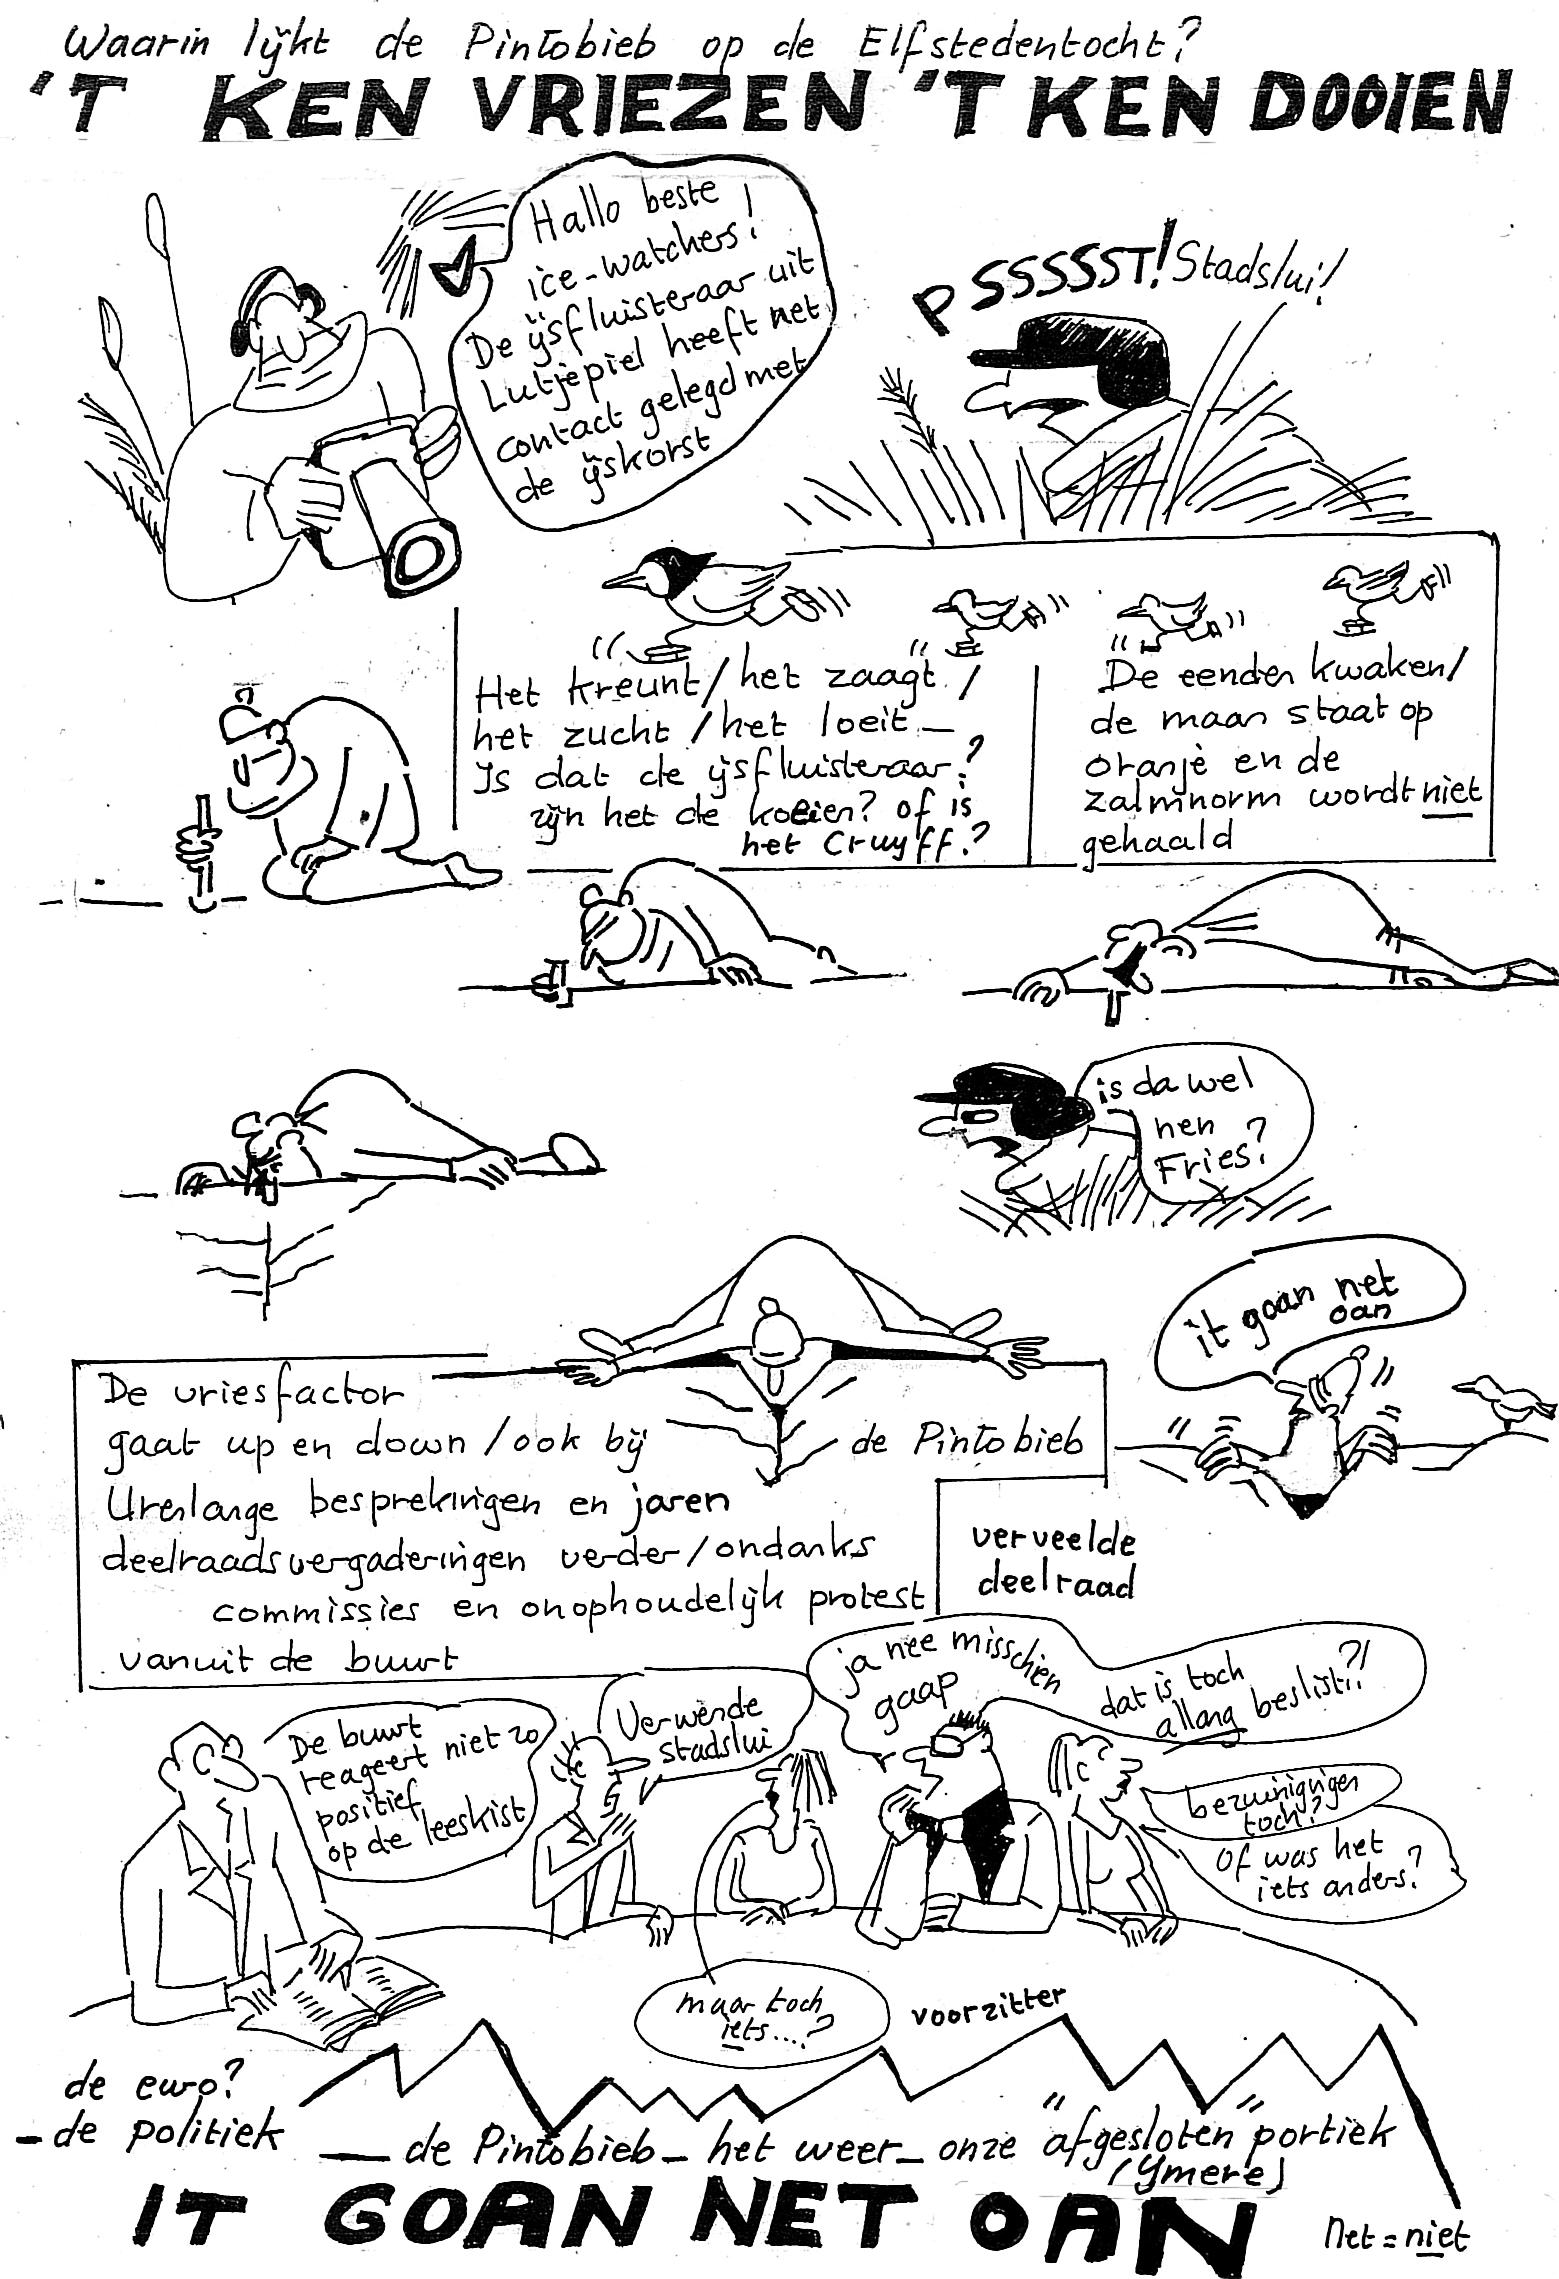 Waarin lijkt de Pintobieb op de Elfstedentocht?
'T KEN VRIEZEN 'T KEN DOOIEN
Hallo beste
ice-watchers!
De ijsfluisteraar uit
Lutjepiel heeft net
contact gelegd met
de ijskorst
PSSSSST! Stadslui!
Het kreunt/het zaagt/
het zucht/het loeit_
Is dat de ijsfluisteraar?
zijn het de koeien? of is
het Cruyff?
De eenden kwaken/
de maan staat op
oranje en de
zalmnorm wordt niet
gehaald
is da wel
nen
Fries?
it goan net
oan
De vriesfactor
gaat up en down/ook bij
de Pintobieb
Urenlange besprekingen en jaren
deelraadsvergaderingen verder/ondanks
commissies en onophoudelijk protest
vanuit de buurt
verveelde
deelraad
De buurt
reageert niet zo
positief
op de leeskist
Verwende
stadslui
ja nee misschien
gaap
dat is toch
allang beslist??!
bezuinigingen
toch?
Of was het
iets anders?
maar toch
iets....?
voorzitter
de euro?
_de politiek
— de Pintobieb_ het weer_ onze "afgesloten" portiek
(Ymere)
IT GOAN NET OAN
Net = niet